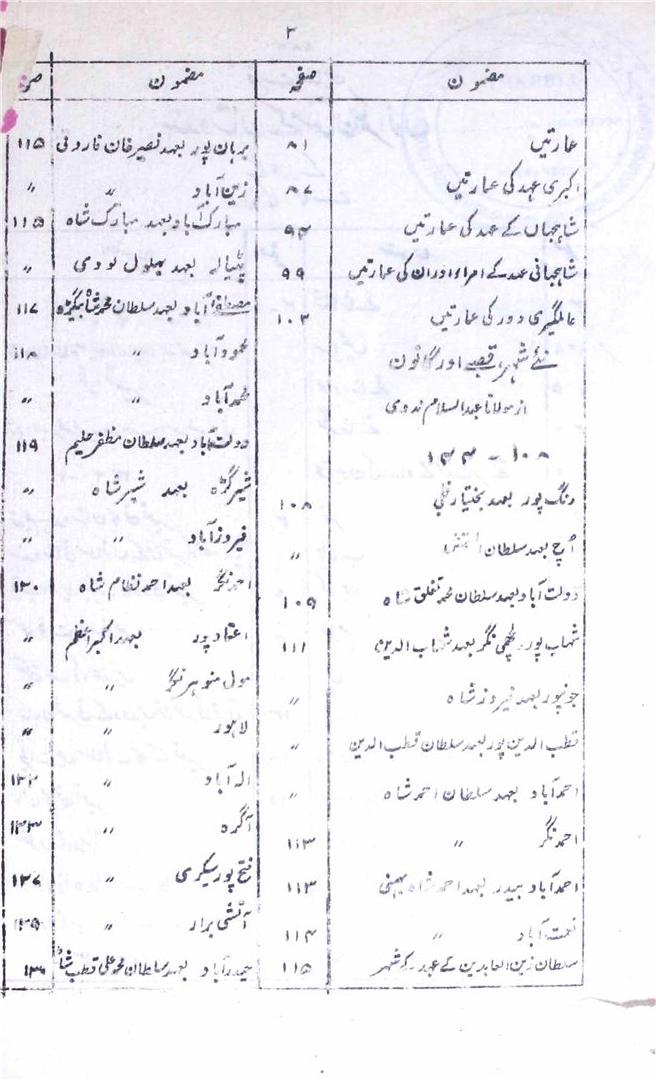 ۲
مضمون صفحہ
عمارتیں ۸۱
اکبری عہد کی عمارتیں ۸۷
شاہجہاں کے عہد کی عمارتیں ۹۴
شاہجہانی عہد کے امراء اور ان کی عمارتیں ۹۹
عالمگیری دور کی عمارتیں ۱۰۳
نئے شہر، قصبے اور گانوں
از مولانا عبدالسلام ندوی
۱۰۸ - ۱۴۴
رنگ پور بعہد بختیار خلجی ۱۰۸
اُچ بعہد سلطان التمش 〃
دولت آباد بعہد سلطان محمد تغلق شاہ ۱۰۹
شہاب پور، لچھمی نگر بعہد شہاب الدین ۱۱۱
جونپور بعہد فیروز شاہ 〃
قطب الدین پور بعہد سلطان قطب الدین 〃
احمد آباد بعہد سلطان احمد شاہ 〃
احمد نگر 〃 ۱۱۳
احمد آباد بیدر بعہد احمد شاہ بہمنی ۱۱۳
نعمت آباد 〃 ۱۱۴
سلطان زین العابدین کے عہد کے شہر ۱۱۵
مضمون
برہان پور بعہد نصیر خان فاروقی ۱۱۵
زین آباد 〃 〃
مبارک آباد بعہد مبارک شاہ ۱۱۵
پٹیالہ بعہد بہلول لودی 〃
مصطفےٰ آباد بعہد سلطان محمد شاہ بیگڑہ ۱۱۷
محمود آباد 〃 ۱۱۸
محمد آباد 〃 〃
دولت آباد بعہد سلطان مظفر حلیم ۱۱۹
شیر گڑھ بعہد شیر شاہ 〃
فیروز آباد 〃 〃
احمد نگر بعہد احمد نظام شاہ ۱۲۰
اعتماد پور بعہد اکبر اعظم 〃
مول منوہر نگر 〃 〃
لاہور 〃 〃
الہ آباد 〃 ۱۲۲
آگرہ 〃 ۱۲۳
فتح پور سیکری 〃 ۱۲۷
〃 ۱۳۵
حیدر آباد بعہد سلطان محمد علی قطب شاہ ۱۳۶